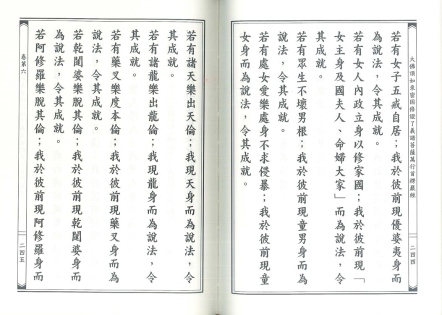 大佛頂如來密因修證了義諸菩薩萬行首楞嚴經
二四四
若有女子五戒自居；我於彼前現優婆夷身而
為說法，令其成就。
若有女人內政立身以修家國；我於彼前現「
女主身及國夫人、命婦大家」而為說法，令
其成就。
若有眾生不壞男根；我於彼前現童男身而為
說法，令其成就。
若有處女愛樂處身不求侵暴；我於彼前現童
女身而為說法，令其成就。
若有諸天樂出天倫；我現天身而為說法，令
其成就。
若有諸龍樂出龍倫；我現龍身而為說法，令
其成就。
若有藥叉樂度本倫；我於彼前現藥叉身而為
說法，令其成就。
若乾闥婆樂脫其倫；我於彼前現乾闥婆身而
為說法，令其成就。
若阿修羅樂脫其倫；我於彼前現阿修羅身而
卷第六
二四五